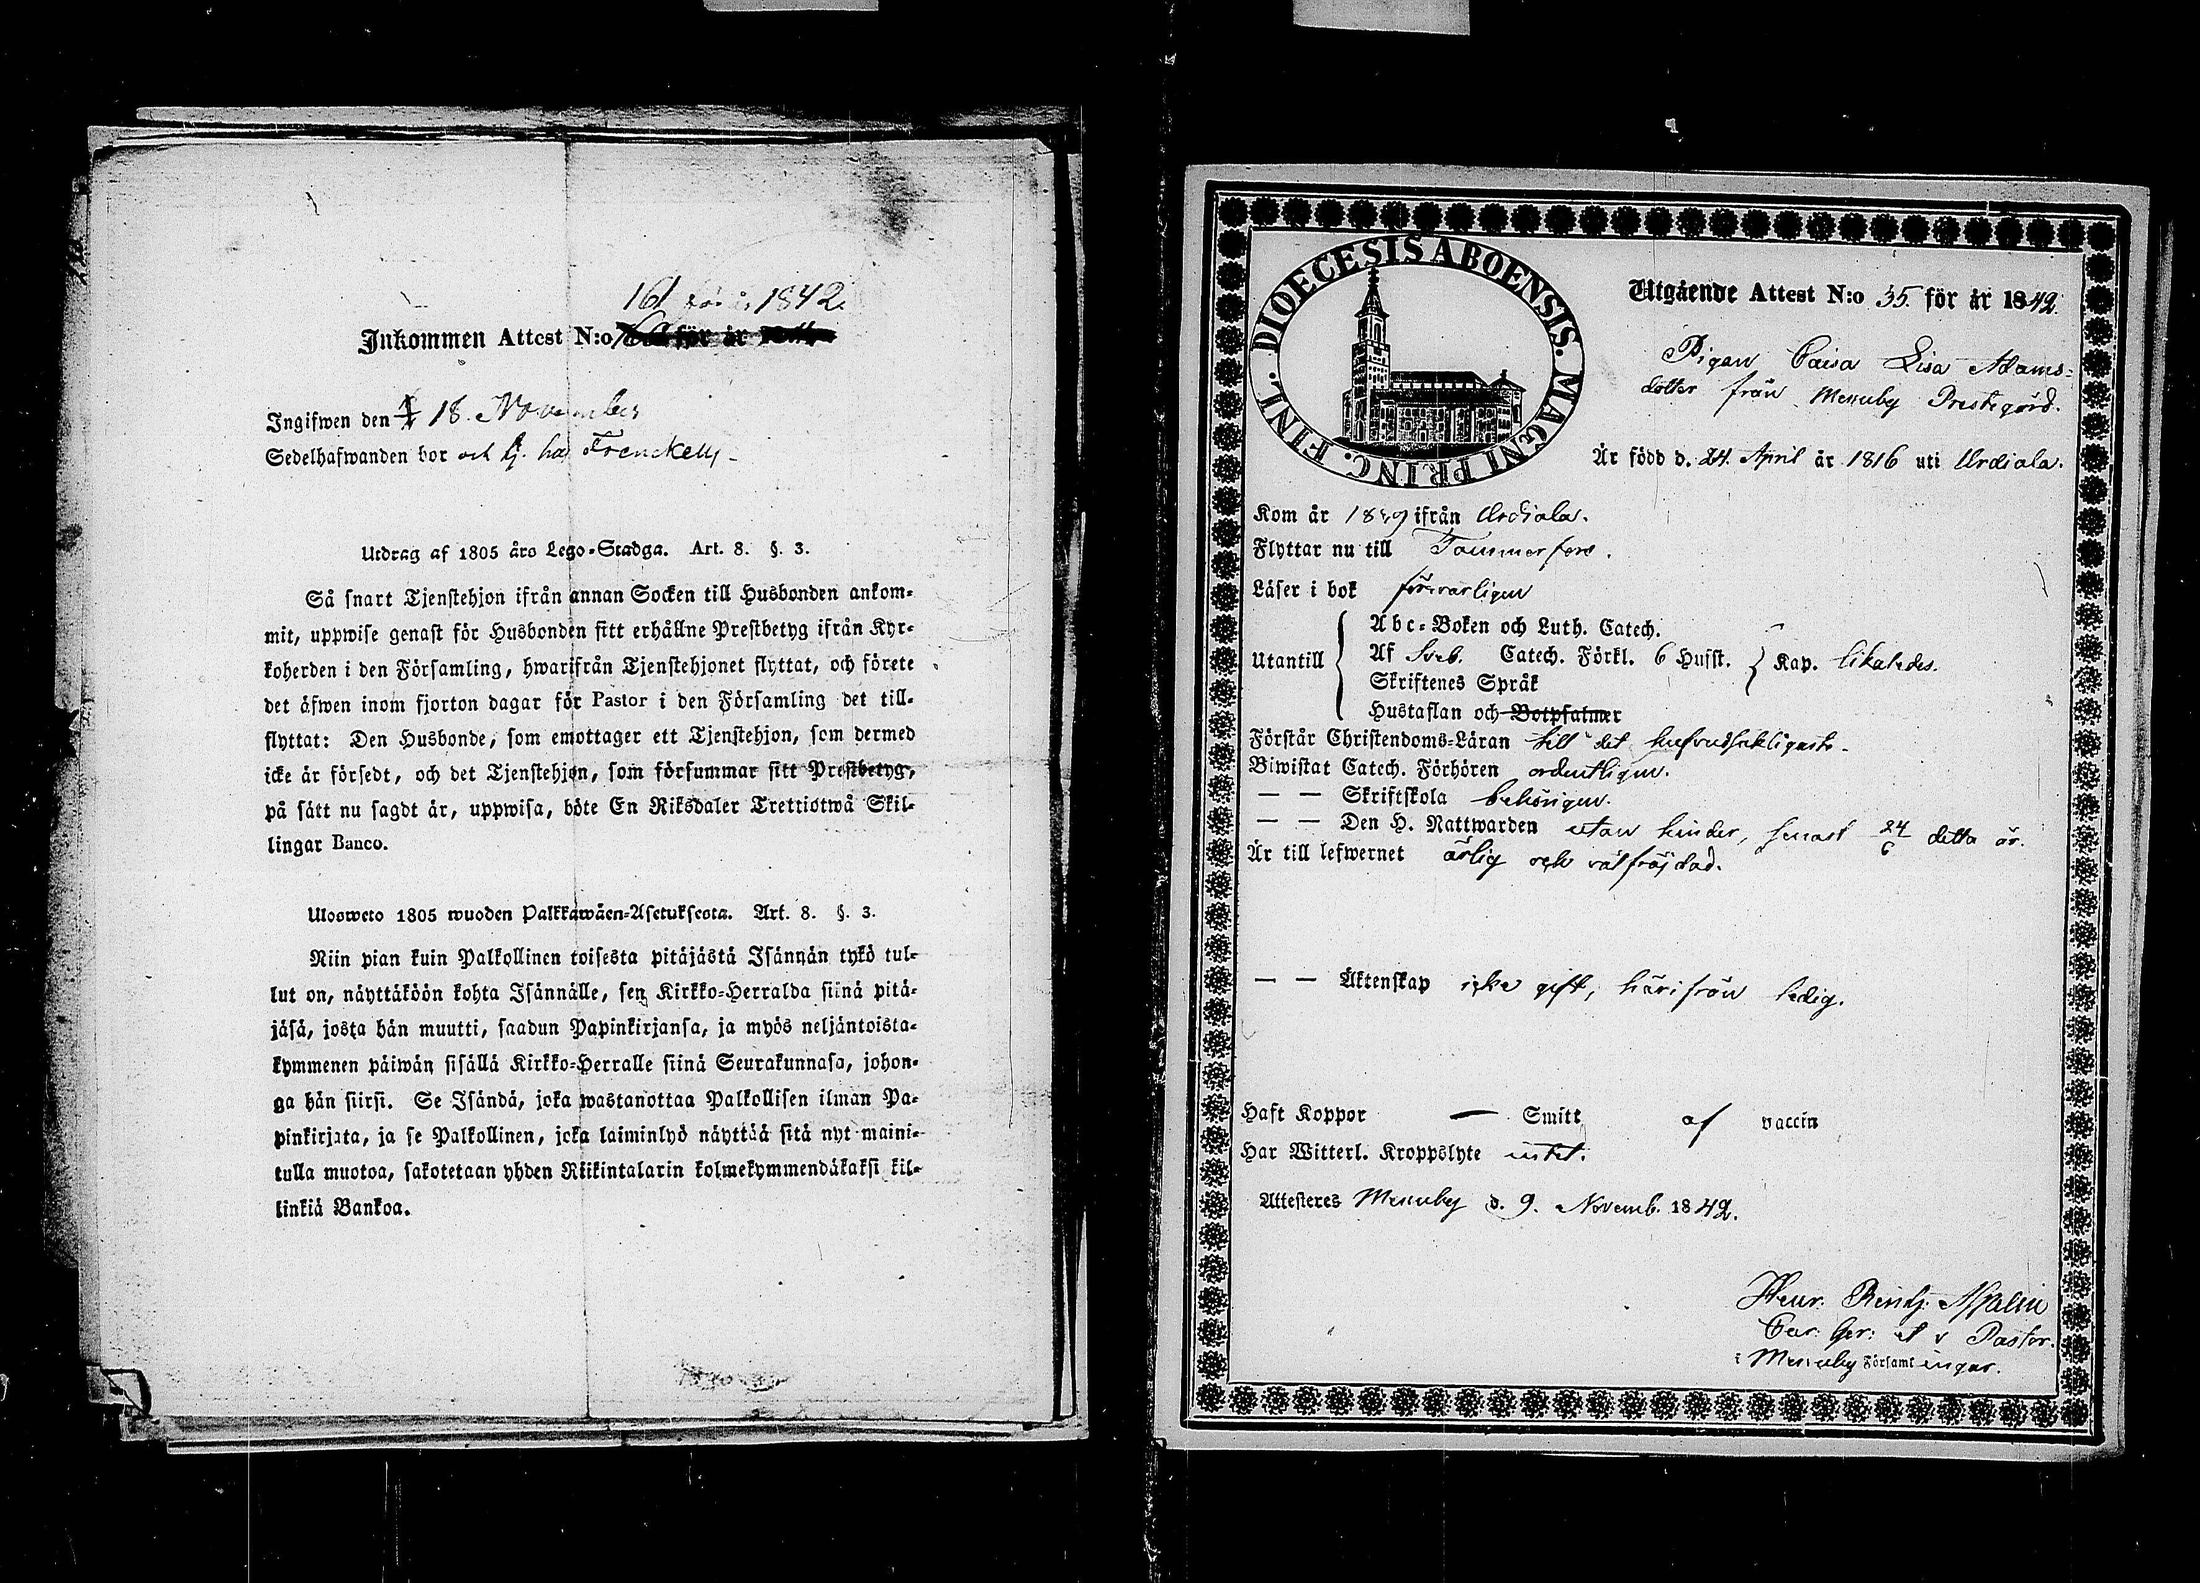 161 för år 1842.
Inkommen Attest N:o för år
Ingifwen den 18. November
Sedelhafwanden bor och tj. hos Frenckell
Utdrag af 1805 års Lego-Stadga. Art. 8. §. 3.
Så snart Tjenstehjon ifrån annan Socken till Husbonden ankom-
mit, uppwise genast för Husbonden sitt erhållne Prestbetyg ifrån Kyr-
koherden i den Församling, hwarifrån Tjenstehjonet flyttat, och förete
det äfwen inom fjorton dagar för Pastor i den Församling det till-
flyttat: Den Husbonde, som emottager ett Tjenstehjon, som dermed
icke är försedt, och det Tjenstehjon, som försummar sitt Prestbetyg,
på sätt nu sagdt är, uppwisa, böte En Riksdaler Trettiotwå Skil-
lingar Banco.
Ulosweto 1805 wuoden Palkkawäen-Asetuksesta. Art. 8. §. 3.
Niin pian kuin Palkollinen toisesta pitäjästä Isännän tykö tul-
lut on, näyttäköön kohta Isännälle, sen Kirkko-Herralda siinä pitä-
jäsä, josta hän muutti, saadun Papinkirjansa, ja myös neljäntoista-
kymmenen päiwän sisällä Kirkko-Herralle siinä Seurakunnasa, johon-
ga hän siirsi. Se Isändä, joka wastanottaa Palkollisen ilman Pa-
pinkirjata, ja se Palkollinen, joka laiminlyö näyttää sitä nyt maini-
tulla muotoa, sakotetaan yhden Riikintalarin kolmekymmendäkaksi kil-
linkiä Bankoa.
DIOECESIS ABOENSIS. MAGNI PRINC. FINL.
Utgående Attest N:o 35. för år 1842.
Pigan Caisa Lisa Adams-
dotter från Messuby Prestegård.
Är född d. 24. April år 1816 uti Urdiala.
Kom år 1839 ifrån Urdiala.
Flyttar nu till Tammerfors.
Läser i bok försvarligen
Utantill
Abc-Boken och Luth. Catech.
Af Sveb. Catech. Förkl. 6 Husst. Kap. likaledes.
Skriftenes Språk
Hustaflan och Botpsalmer
Förstår Christendoms-Läran till det hufvudsakligaste.
Biwistat Catech. Förhören ordentligen.
— — Skriftskola behörigen.
— — Den H. Nattwarden utan hinder, senast 24/6 detta år.
Är till lefwernet ärlig och välfräjdad.
— — Äktenskap icke gift, härifrån ledig.
Haft Koppor — Smitt af vaccin
Har Witterl. Kroppslyte intet.
Attesteres Messuby d. 9. Novemb. 1842.
Henr. Reinh. Malin
Cur. Ger: et v Pastor.
i Messuby Församlingar.